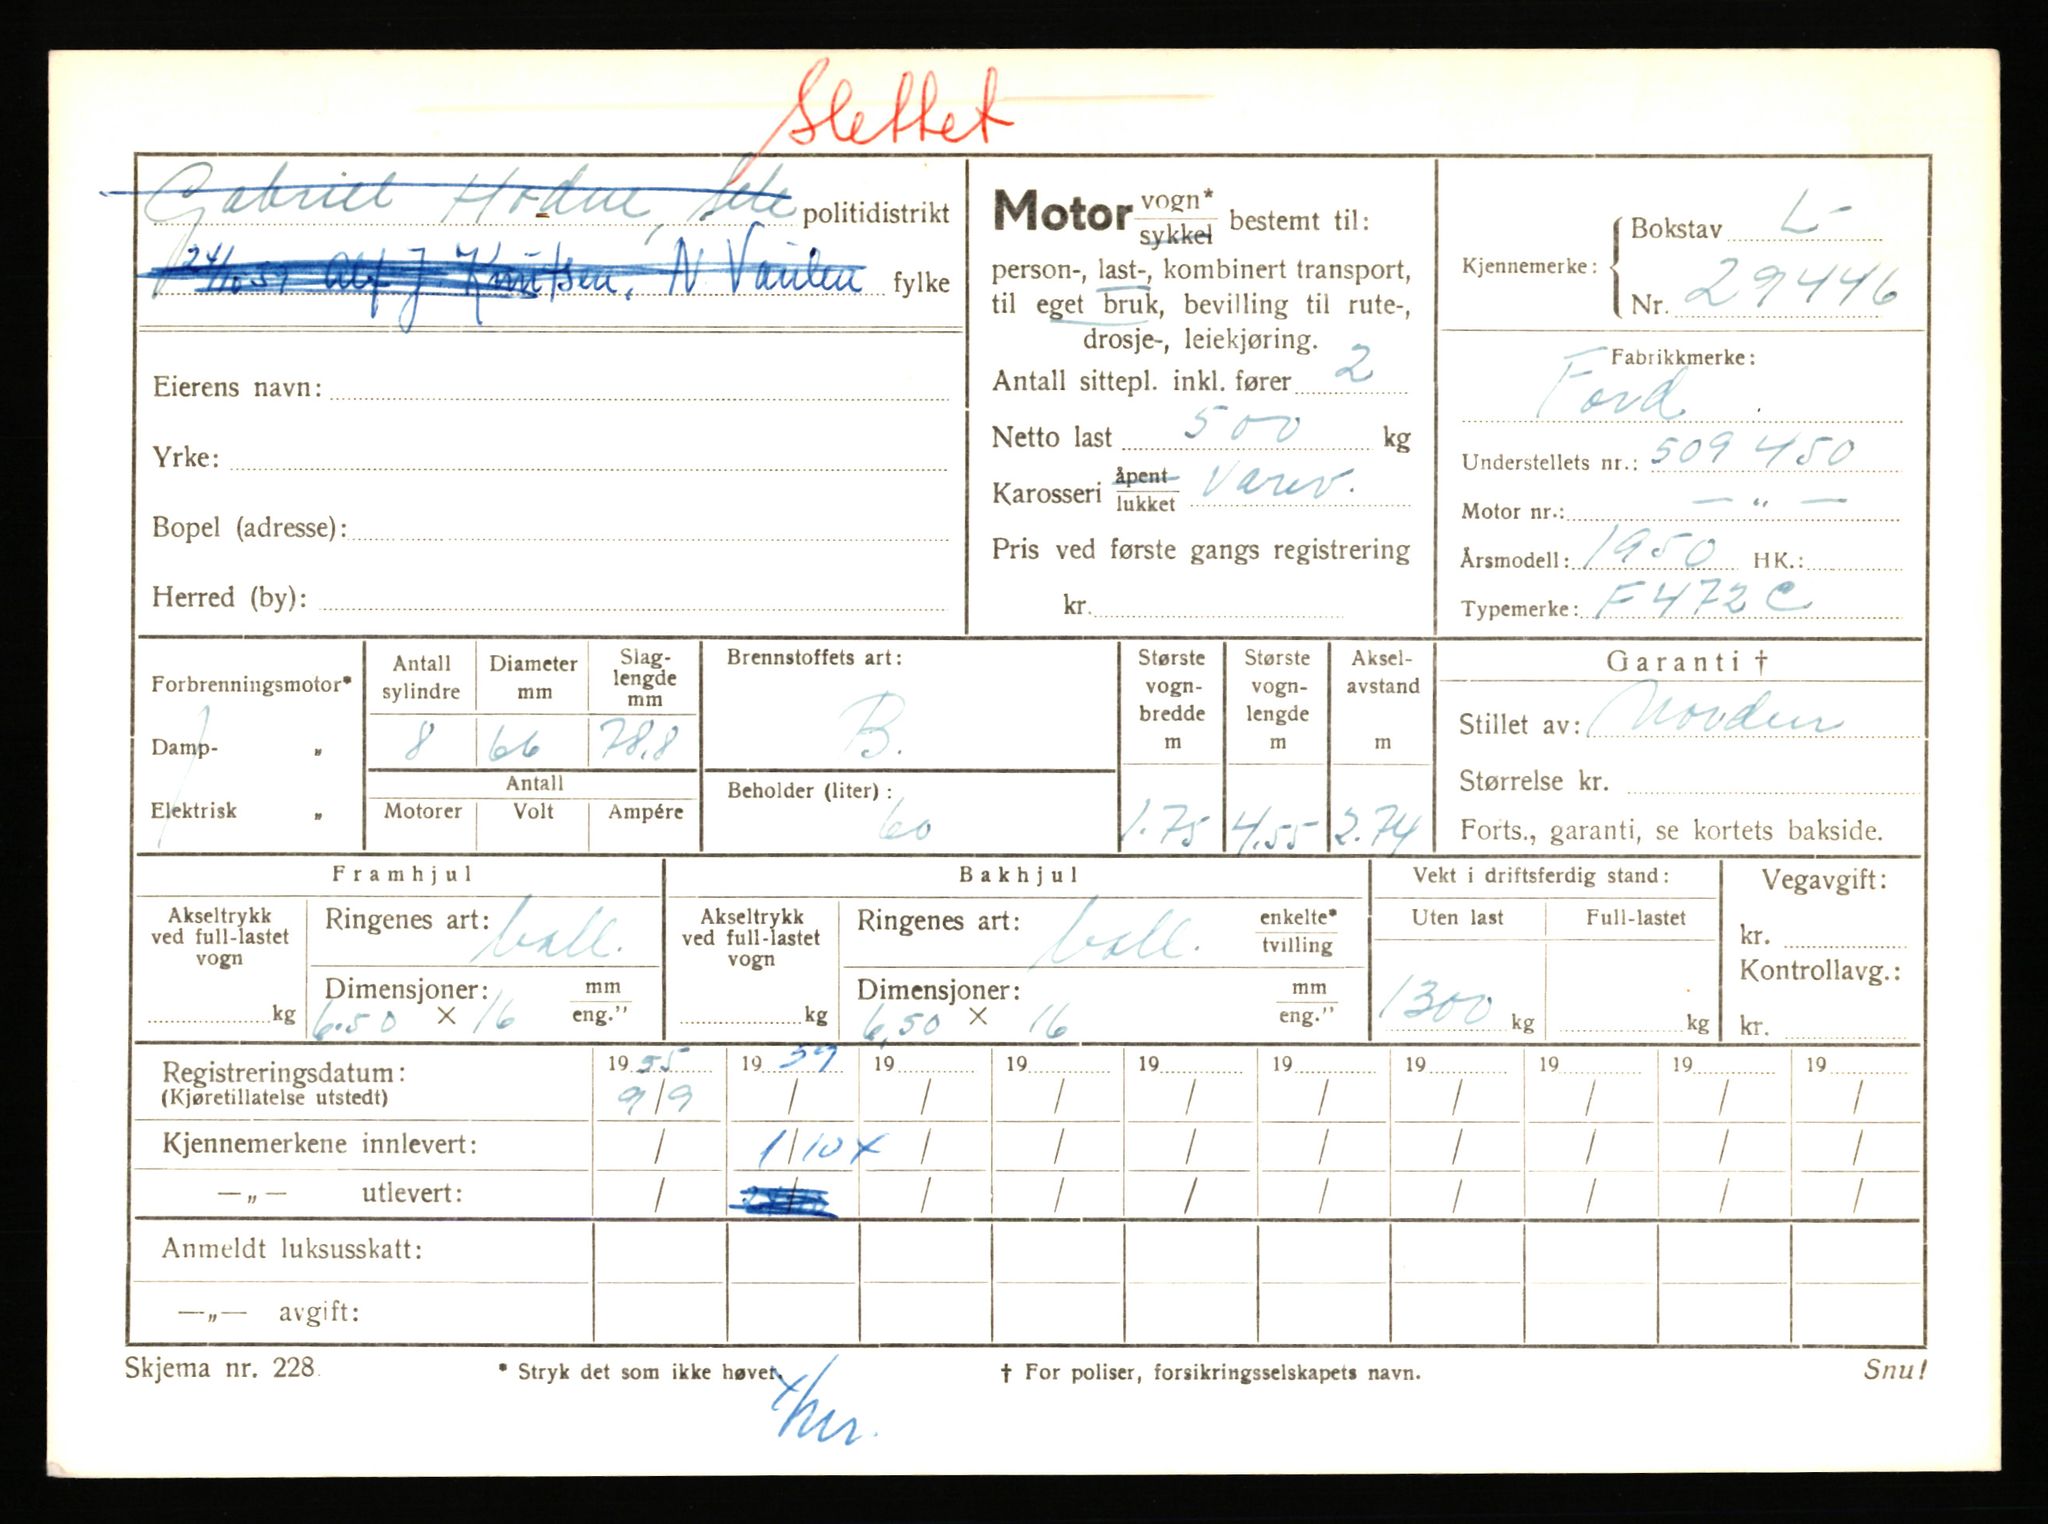 Slettet
Gabriel Hodne, politidistrikt
24/10 59 Alf J Knutsen, N Vaulen fylke
Eierens navn:
Yrke:
Bopel (adresse):
Herred (by):
Motor vogn* / sykkel bestemt til:
person-, last-, kombinert transport,
til eget bruk, bevilling til rute-,
drosje-, leiekjøring.
Antall sittepl. inkl. fører 2
Netto last 500 kg
Karosseri åpent / lukket Varev.
Pris ved første gangs registrering
kr.
Kjennemerke: Bokstav L-
Nr. 29446
Fabrikkmerke:
Ford
Understellets nr.: 509450
Motor nr.: — „ —
Årsmodell: 1950 HK.:
Typemerke: F472C
Forbrenningsmotor*
Damp- „
Elektrisk „
Antall sylindre Diameter mm Slag-lengde mm
8 66 78,8
Antall
Motorer Volt Ampére
Brennstoffets art:
B.
Beholder (liter):
60
Største vogn-bredde m Største vogn-lengde m Aksel-avstand m
1.75 4.55 2.74
Garanti †
Stillet av: Norden
Størrelse kr.
Forts., garanti, se kortets bakside.
Framhjul
Akseltrykk ved full-lastet vogn
kg
Ringenes art: ball.
Dimensjoner: mm / eng."
6.50 × 16
Bakhjul
Akseltrykk ved full-lastet vogn
kg
Ringenes art: ball. enkelte* / tvilling
Dimensjoner: mm / eng."
6,50 × 16
Vekt i driftsferdig stand:
Uten last Full-lastet
1300 kg kg
Vegavgift:
kr.
Kontrollavg.:
kr.
Registreringsdatum: 19 55 19 59 19 19 19 19 19 19 19 19
(Kjøretillatelse utstedt) 9/9 / / / / / / / / /
Kjennemerkene innlevert: / 1/10 x / / / / / / / /
—„— utlevert: / / / / / / / / /
Anmeldt luksusskatt:
—„— avgift:
Skjema nr. 228 * Stryk det som ikke høver. † For poliser, forsikringsselskapets navn. Snu!